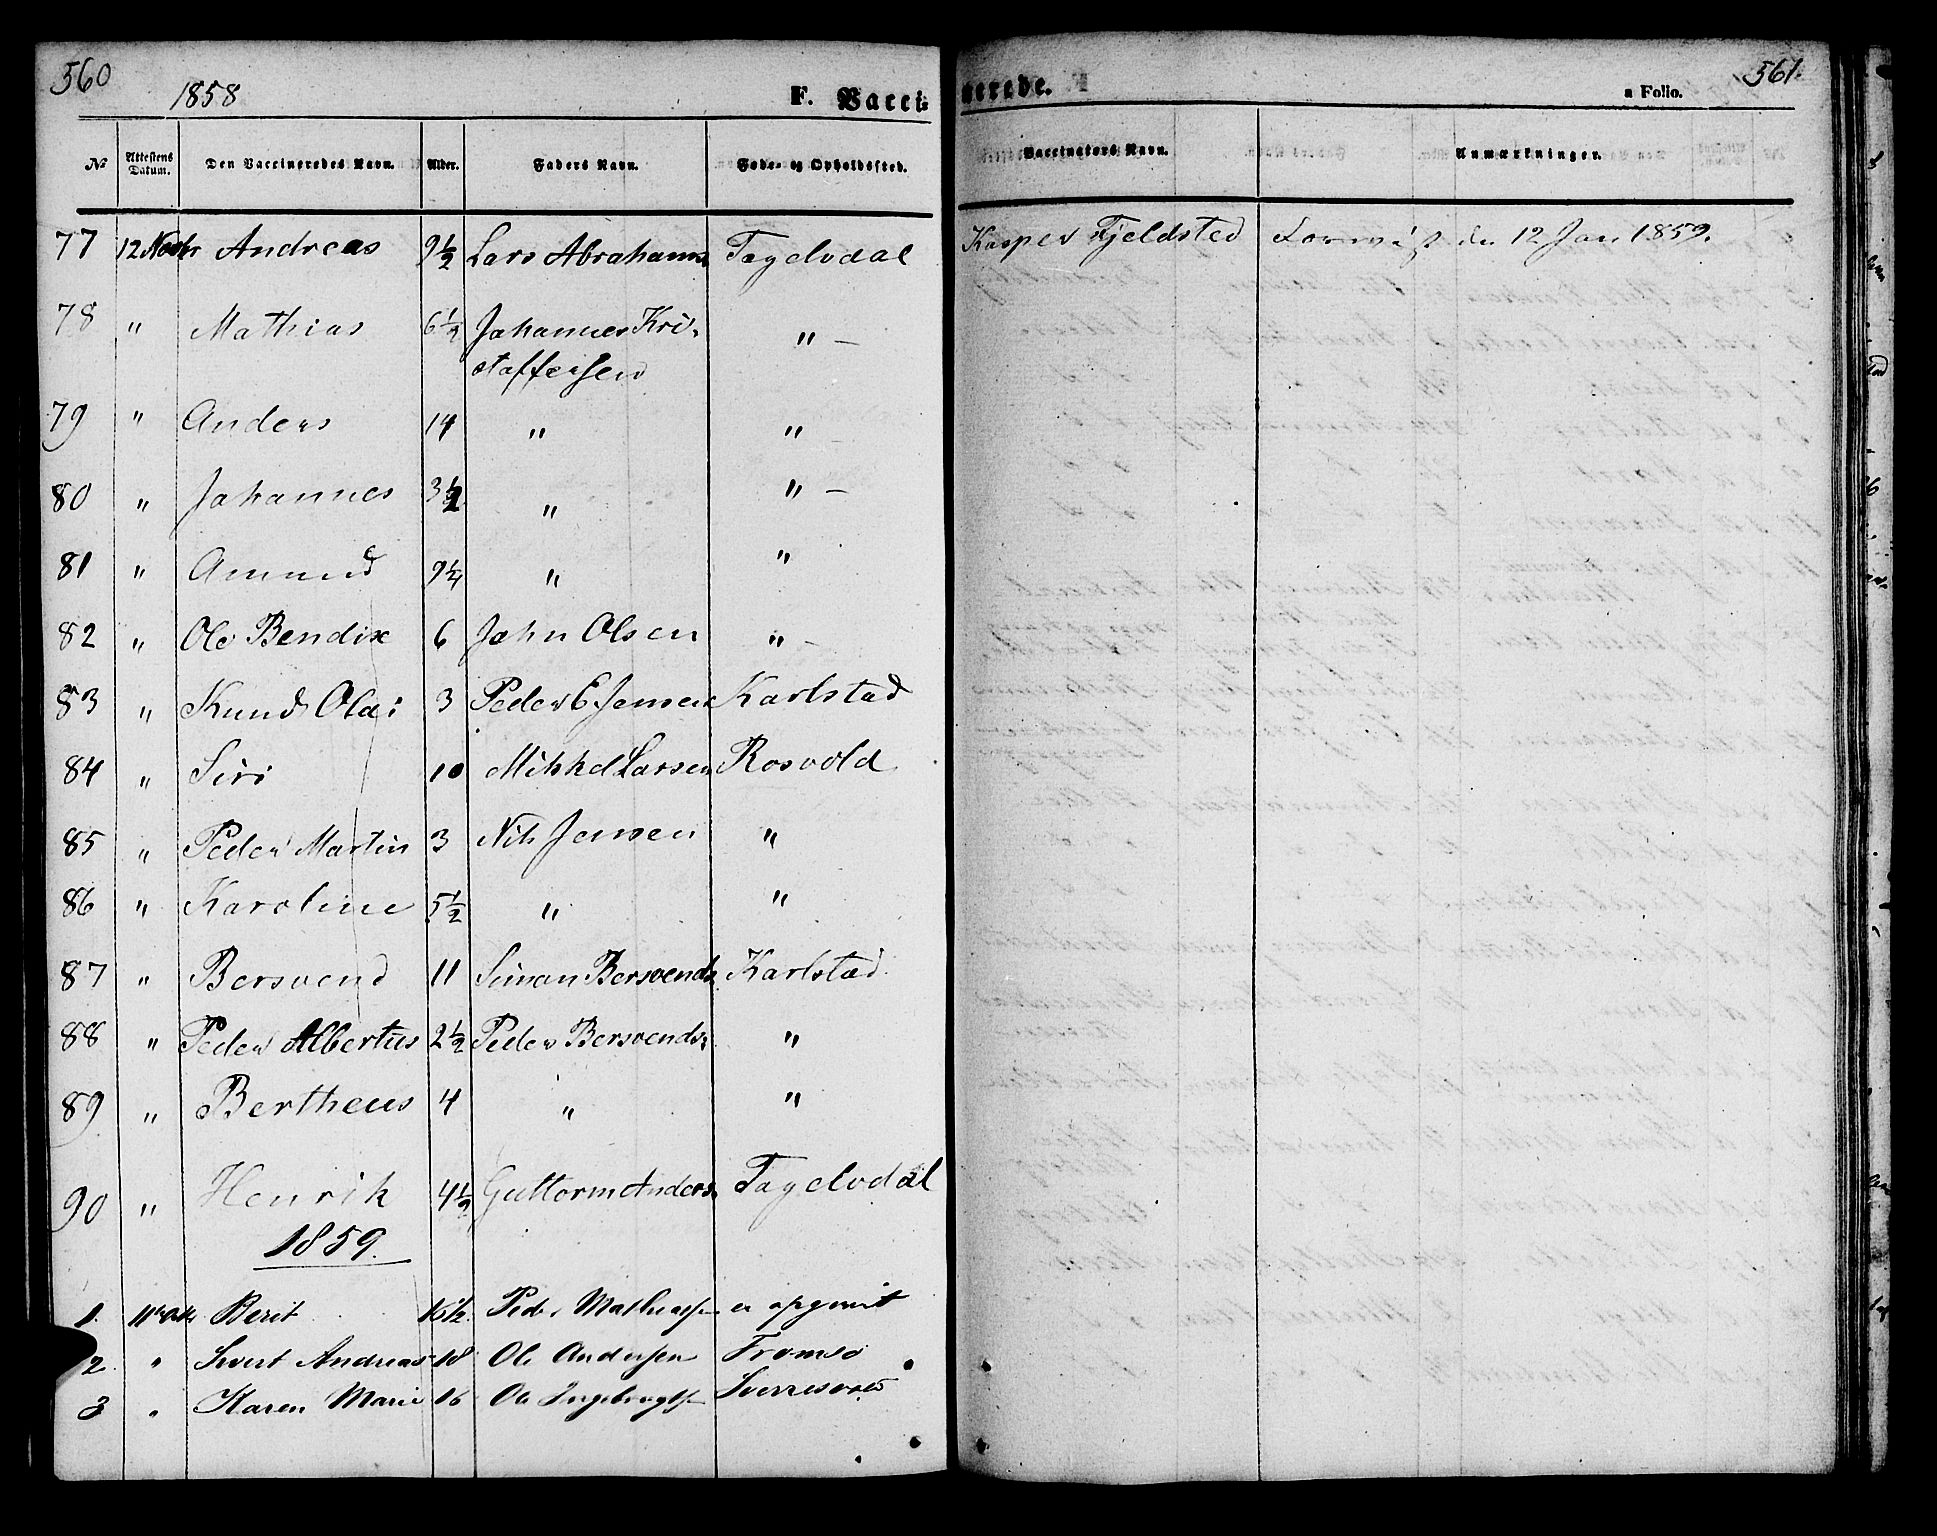 560
1858
F. Vacci-
nerede.
a Folio.
561.
No
Attestens Datum.
Den Vaccineredes Navn.
Alder.
Faders Navn.
Føde- og Opholdssted.
Vaccinators Navn.
Anmærkninger.
77 12 Andreas 9½ Lars Abrahams. Tagelvdal Kasper Fjeldsted den 12 Jan 1859.
78 " Mathias 6½ Johannes Kri-
stoffersen " –
79 " Anders 14 " " –
80 " Johannes 3½ " " –
81 " Amund 9¼ " "
82 " Ole Bendix 6 John Olsen " –
83 " Knud Olai 3 Peder E Jensen Karlstad
84 " Siri 10 Mikkel Larsen Rosvold
85 " Peder Martin 3 Nils Jensen "
86 " Karoline 5½ " "
87 " Bersvend 11 Simon Bersvends. Karlstad
88 " Peder Albertus 2½ Peder Bersvends. "
89 " Bertheus 4 " "
90 " Henrik 4½ Guttorm Anders. Tagelvdal
1859.
1. Berit Peder er
2. " Sivert Andreas 18 Ole Andersen Tromsø
3 " Karen Marie 16 Ole